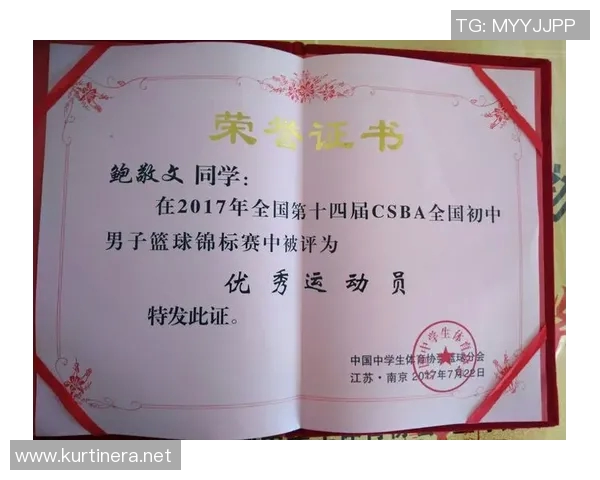 TG: MYYJJPP
荣誉证书
鲍敬文 同学：
在2017年全国第十四届CSBA全国初中
男子篮球锦标赛中被评为
优秀运动员
特发此证。
中国中学生体育协会篮球分会
江苏·南京 2017年7月22日
www.kurtinera.net